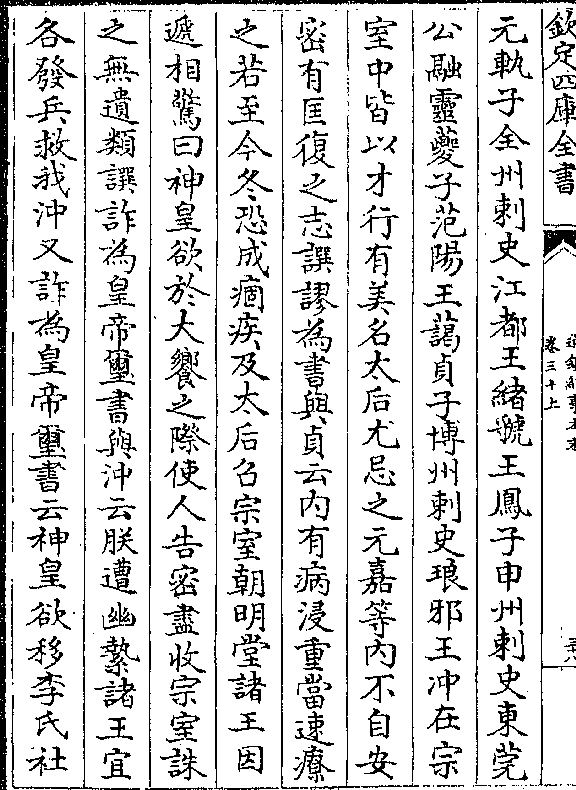 欽定四庫全書
通鑑紀事本末
卷三十上
元軌子全州刺史江都王緒虢王鳳子申州刺史東莞
公融靈夔子范陽王藹貞子博州刺史琅邪王冲在宗
室中皆以才行有美名太后尤忌之元嘉等内不自安
密有匡復之志譔謬為書與貞云内有病浸重當速療
之若至今冬恐成痼疾及太后召宗室朝明堂諸王因
遞相驚曰神皇欲於大饗之際使人告密盡收宗室誅
之無遺類譔詐為皇帝璽書與冲云朕遭幽縶諸王宜
各發兵救我冲又詐為皇帝璽書云神皇欲移李氏社